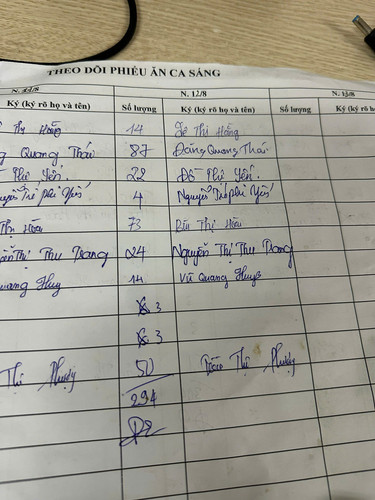 THEO DÕI PHIẾU ĂN CA SÁNG
N. 12/8 N. 13/8
Ký (ký rõ họ và tên) Số lượng Ký (ký rõ họ và tên) Số lượng Ký (ký rõ họ
Thị Hồng 14 Lê Thị Hồng
Quang Thái 87 Đặng Quang Thái
Thị Yến. 22 Đỗ Thị Yến.
4 Nguyễn Yến
Thị Hòa 73 Bùi Thị Hòa
Thị Thu Trang 24 Nguyễn Thị Thu Trang
Quang Huy 14 Vũ Quang Huy
3
3
Thị Phượng 50 Trần Thị Phượng
294